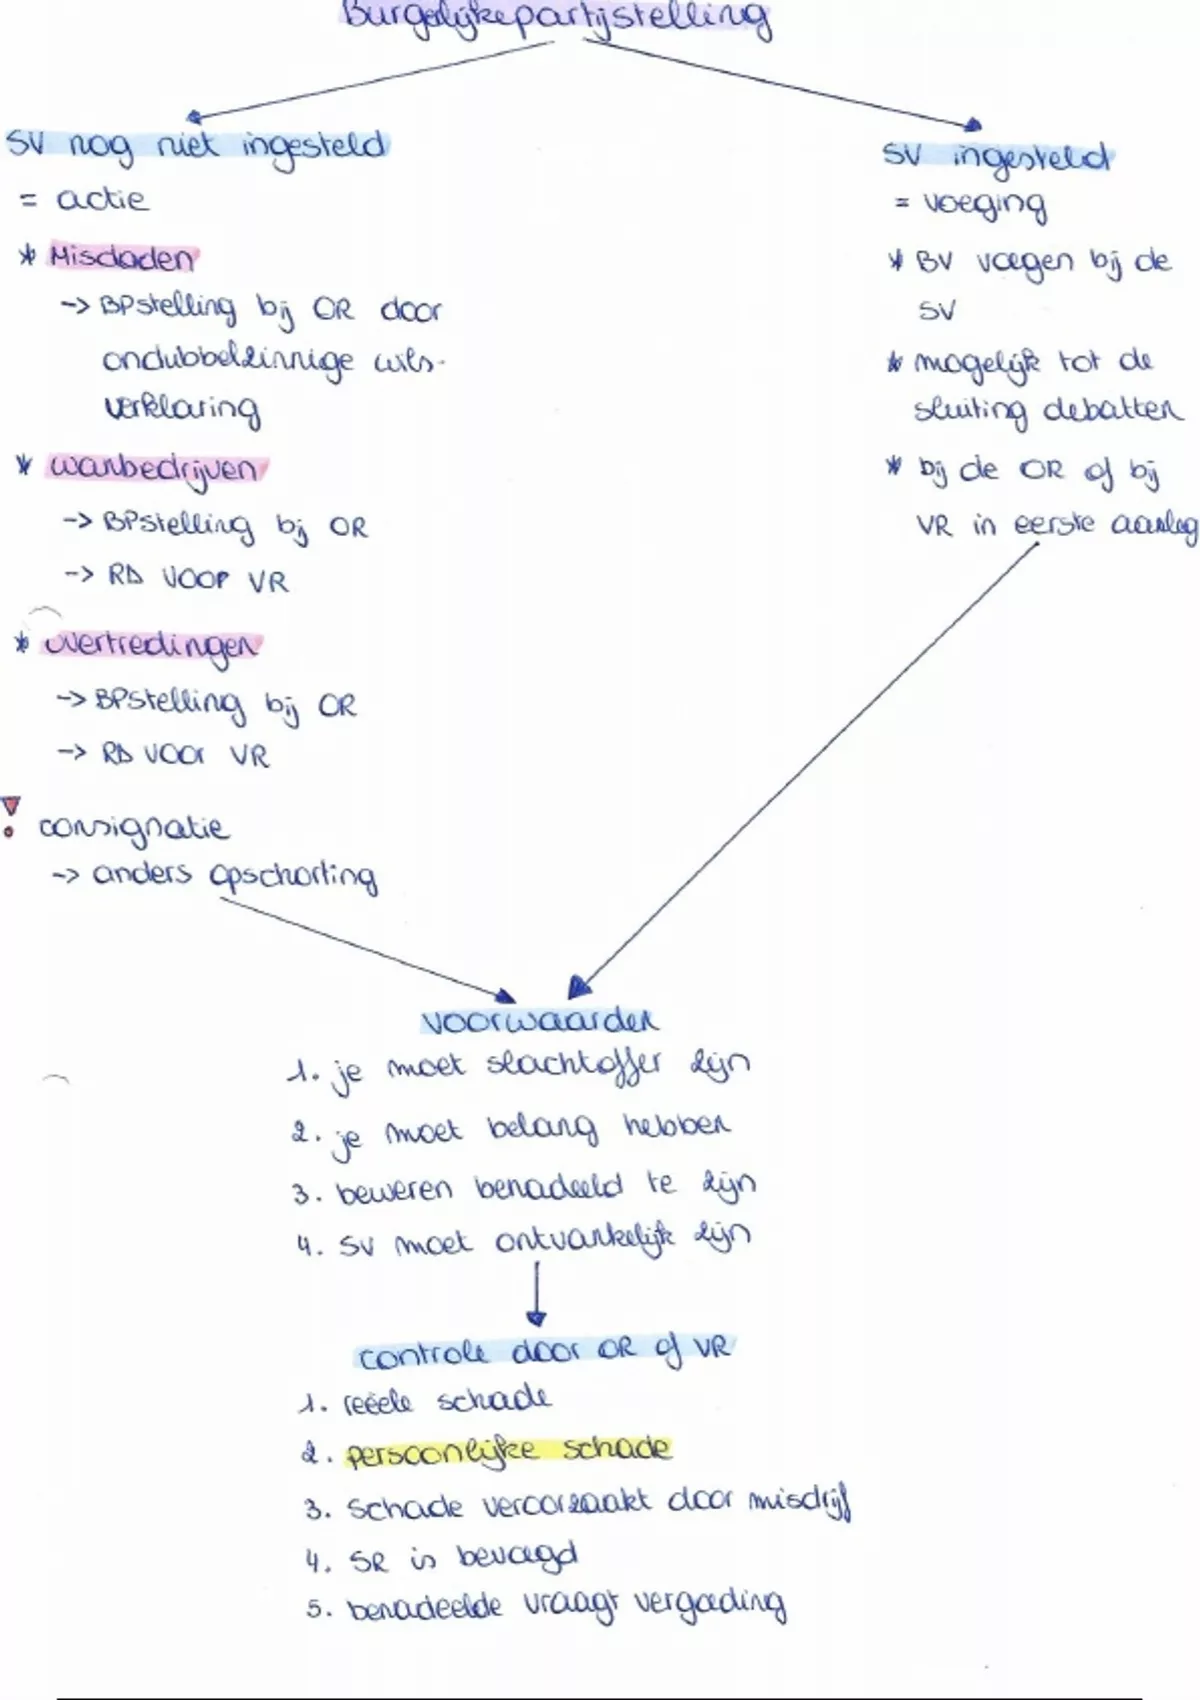 Burgelijkepartijstelling
SV nog niet ingesteld
= actie
* Misdaden
-> BPstelling bij OR door
ondubbelzinnige wils-
verklaring
* wanbedrijven
-> BPstelling bij OR
-> RD voor VR
* overtredingen
-> BPstelling bij OR
-> RD voor VR
! consignatie
-> anders opschorting
SV ingesteld
= voeging
* BV voegen bij de
SV
* mogelijk tot de
sluiting debatten
* bij de OR of bij
VR in eerste aanleg
voorwaarden
1. je moet slachtoffer zijn
2. je moet belang hebben
3. beweren benadeeld te zijn
4. SV moet ontvankelijk zijn
controle door OR of VR
1. reëele schade
2. persoonlijke schade
3. schade veroorzaakt door misdrijf
4. SR is bevoegd
5. benadeelde vraagt vergoeding